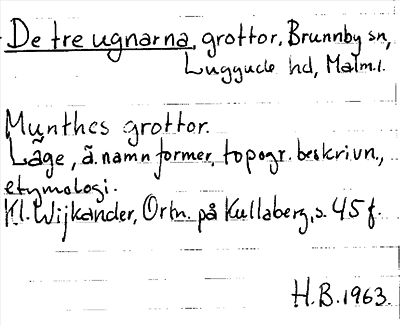 De tre ugnarna, grottor, Brunnby sn,
Luggude hd, Malm.l.
Munthes grottor.
Läge, ä. namnformer, topogr. beskrivn.,
etymologi.
Kl. Wijkander, Ortn. på Kullaberg, s. 45 f.
H.B. 1963.